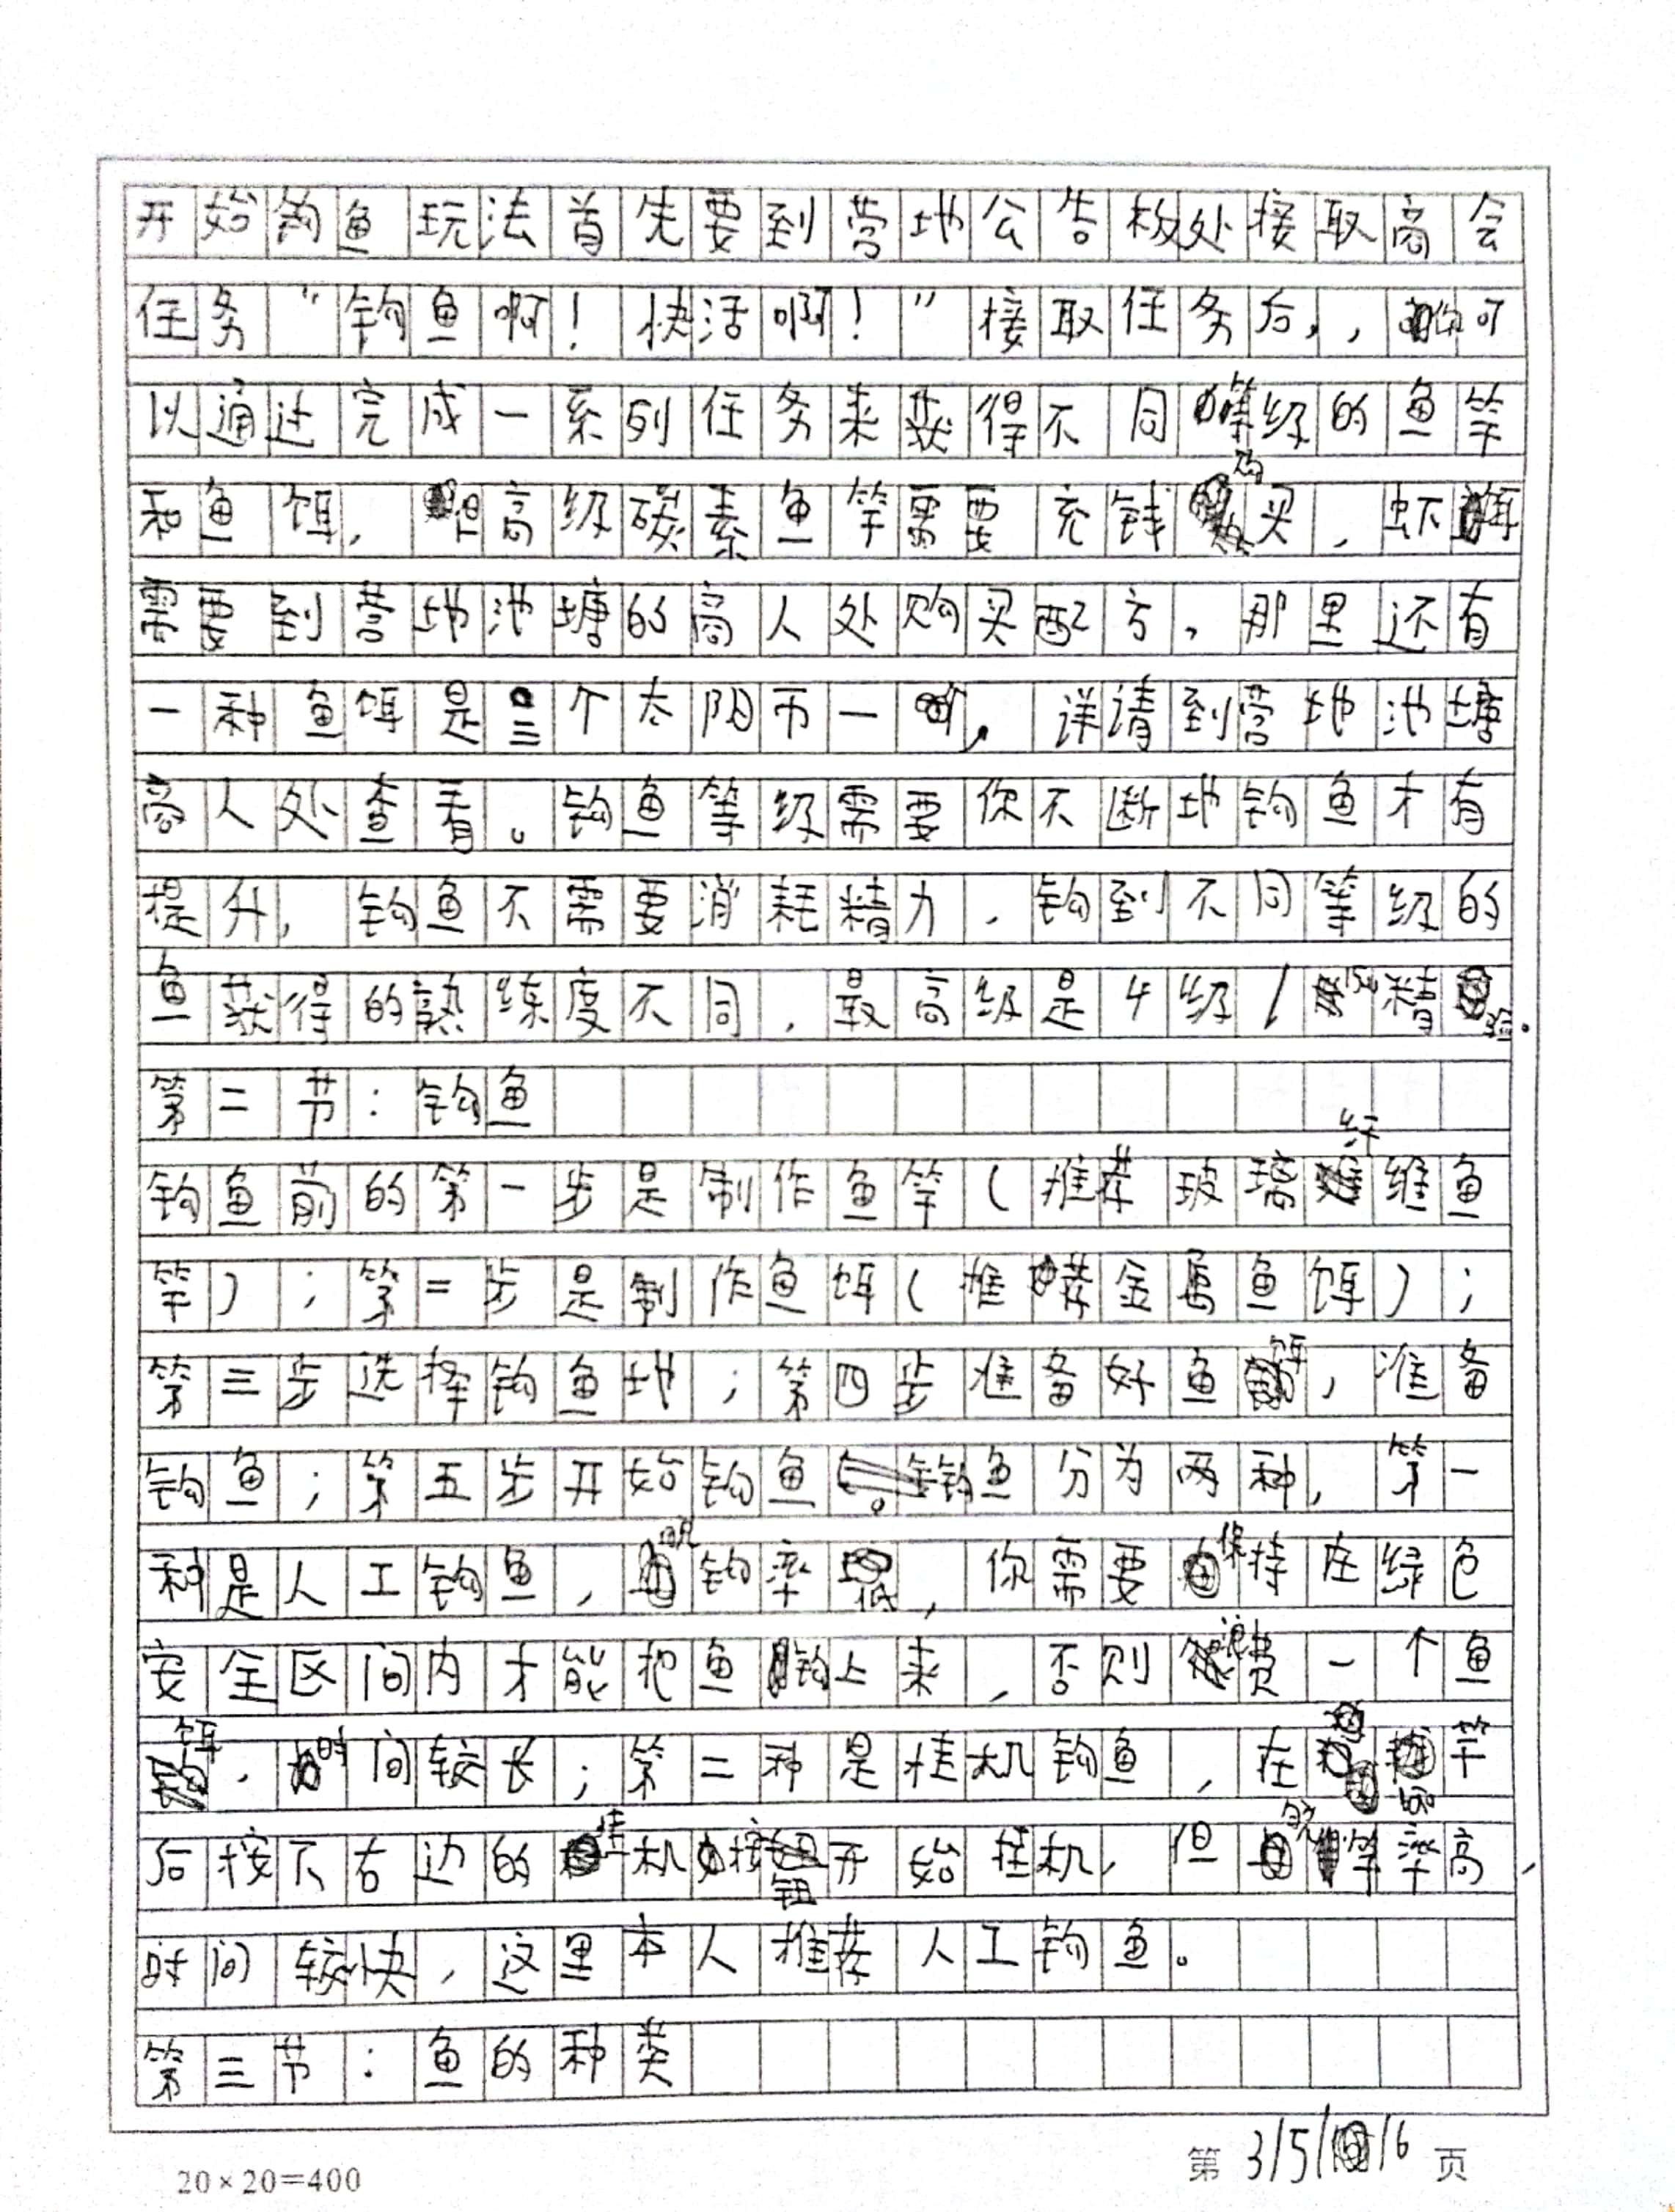 开始钓鱼玩法首先要到营地公告板处接取商会
任务“钓鱼啊！快活啊！”接取任务后，，你可
以通过完成一系列任务来获得不同等级的鱼竿
和鱼饵，但高级碳素鱼竿需要充钱购买，虾饵
需要到营地池塘的商人处购买配方，那里还有
一种鱼饵是三个太阳币一个，详请到营地池塘
商人处查看。钓鱼等级需要你不断地钓鱼才有
提升，钓鱼不需要消耗精力，钓到不同等级的
鱼获得的熟练度不同，最高级是4级/150精验。
第二节：钓鱼
钓鱼前的第一步是制作鱼竿（推荐玻璃纤维鱼
竿）；第二步是制作鱼饵（推荐金属鱼饵）；
第三步选择钓鱼地；第四步准备好鱼饵，准备
钓鱼；第五步开始钓鱼。钓鱼分为两种，第一
种是人工钓鱼，脱钩率低，你需要保持在绿色
安全区间内才能把鱼钩上来，否则浪费一个鱼
饵，时间较长；第二种是挂机钓鱼，在竿
后按下右边的挂机按钮开始挂机，但脱竿率高，
时间较快，这里本人推荐人工钓鱼。
第三节：鱼的种类
20×20=400
第3/5/16页